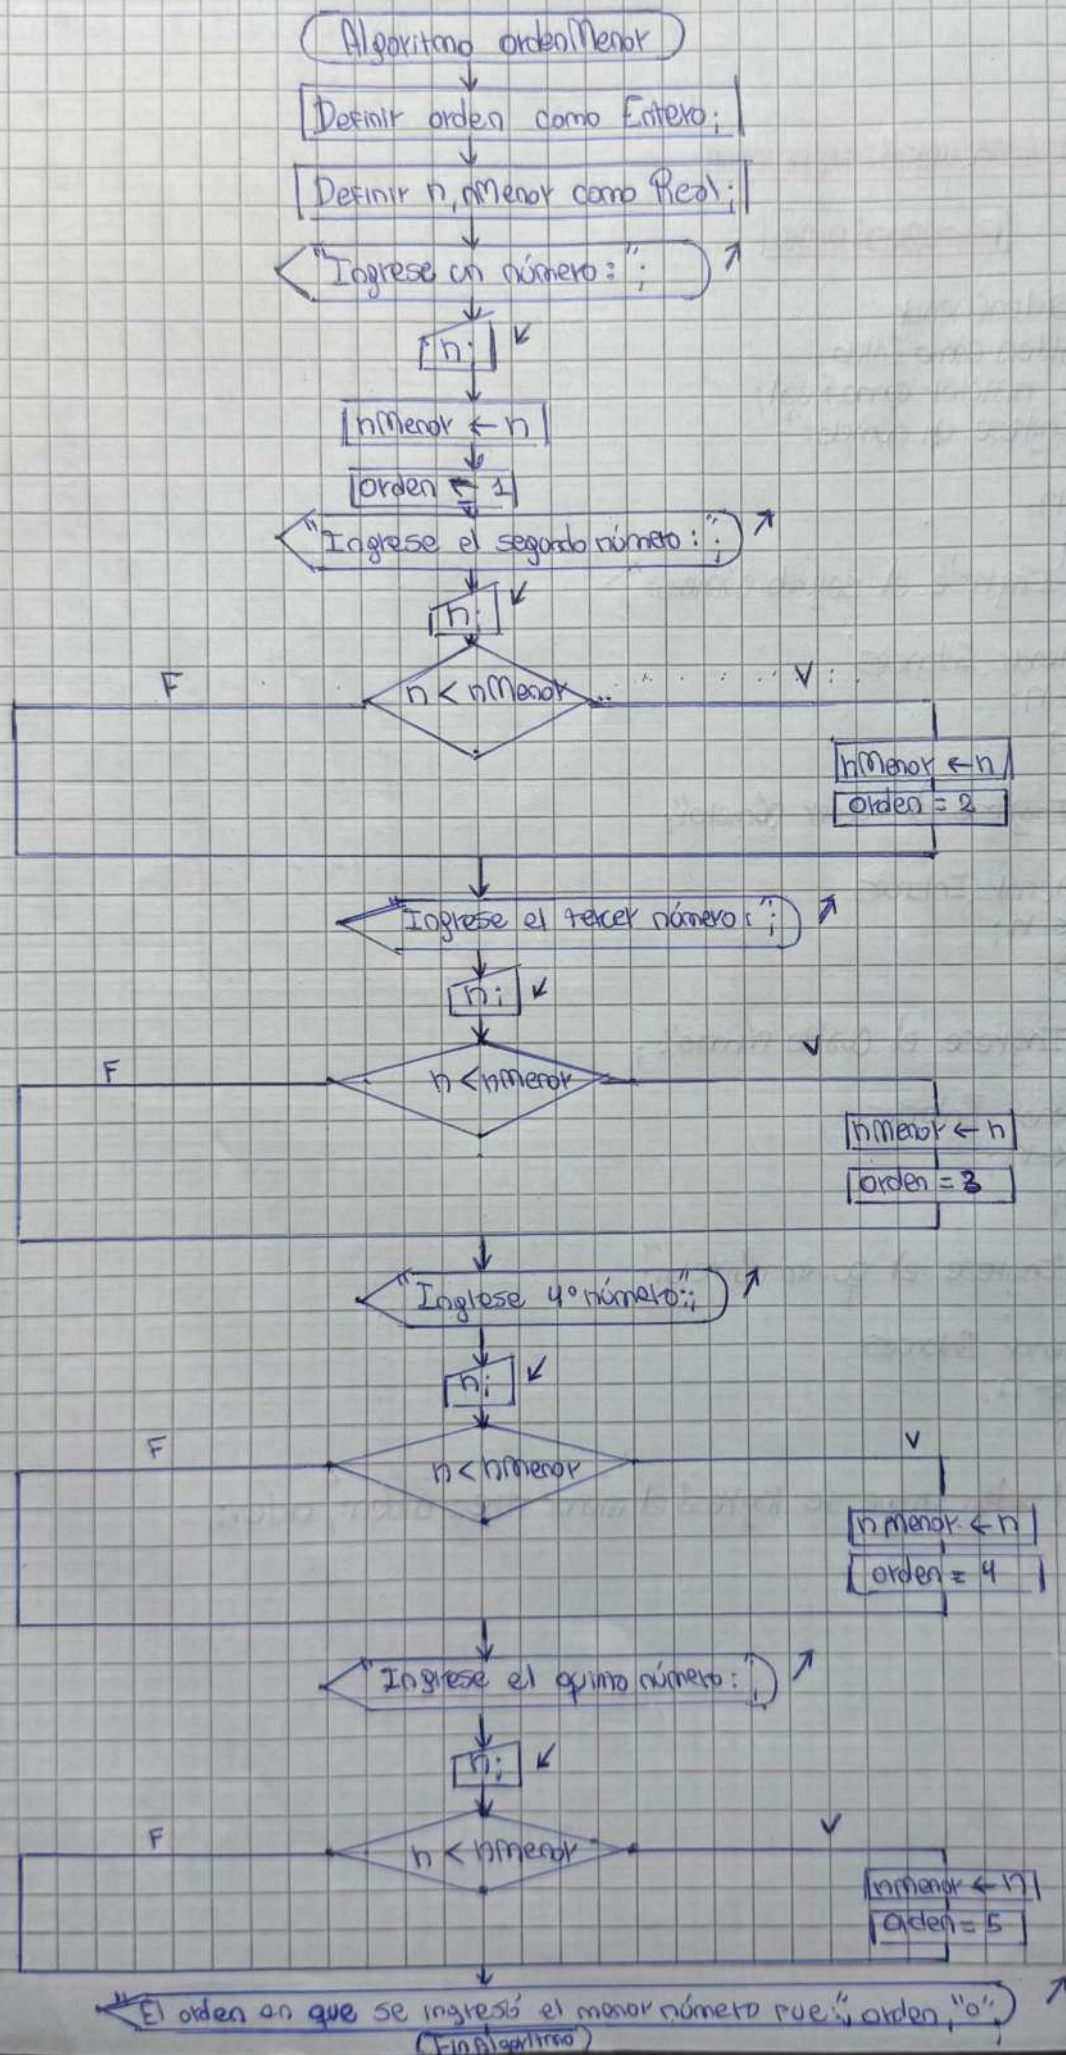 Algoritmo ordenMenor
Definir orden como Entero;
Definir n, nMenor como Real;
"Ingrese un número:";
n;
nMenor ← n
orden ← 1
"Ingrese el segundo número:";
n;
n < nMenor
F
V
nMenor ← n
orden = 2
"Ingrese el tercer número:";
n;
n < nMenor
F
V
nMenor ← n
orden = 3
"Ingrese 4º número:";
n;
n < nMenor
F
V
nMenor ← n
orden = 4
"Ingrese el quinto número:";
n;
n < nMenor
F
V
nMenor ← n
orden = 5
"El orden en que se ingresó el menor número fue:", orden, "º";
FinAlgoritmo